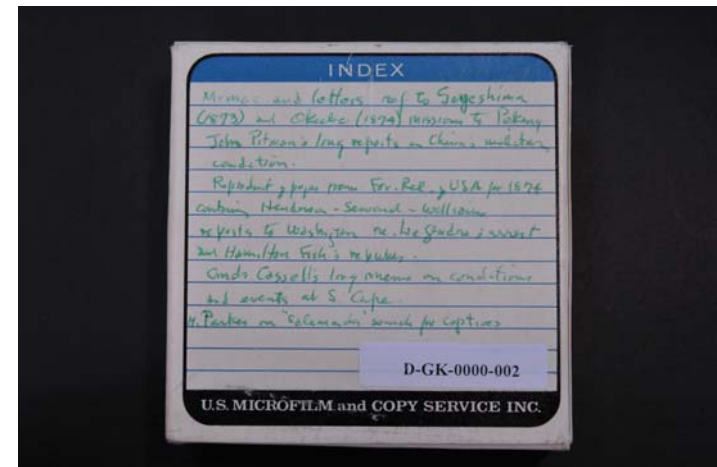 INDEX
Memos and letters ref to Soyeshima
(1873) and Okubo (1874) missions to Peking
John Pitman's long reports on China's military
condition.
Reprodu't g papes from For. Rel. g USA for 1874
contning Henderson - Seward - Williams
reports to Washington re. Le Gendre's arrest
and Hamilton Fish's rebukes.
Cmdr Cassell's long memo on conditions
and events at S. Cape.
H. Parker on "Salamander" search for captives
D-GK-0000-002
U.S. MICROFILM and COPY SERVICE INC.